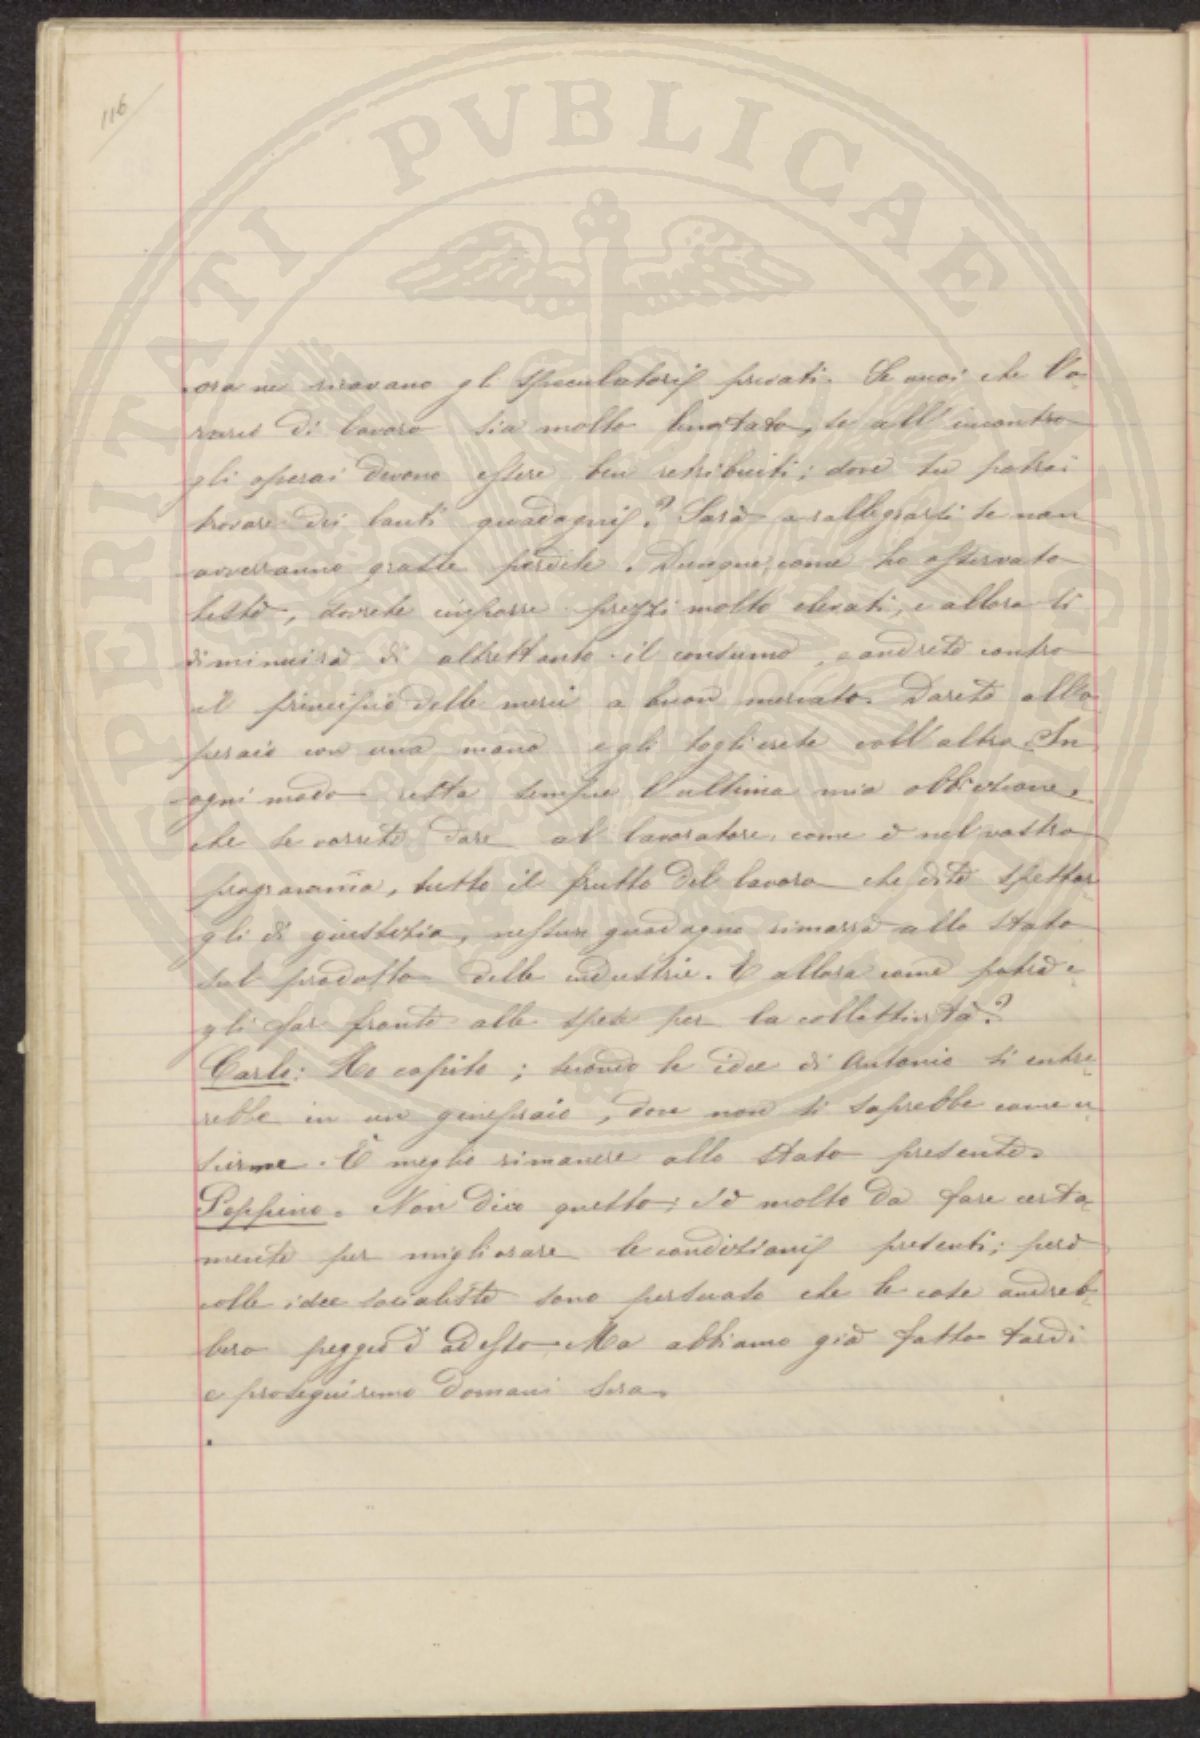 116
ora ne ricavano gl speculatori privati. Se vuoi che l'o-
rario di lavoro sia molto limitato, se all'incontro
gli operai devono essere ben retribuiti; dove tu potrai
trovare dei lauti guadagni? Sarà a rallegrarsi se non
avverranno grosse perdite. Dunque, come ho osservato
testè, dovrete imporre prezzi molto elevati, e allora si
diminuirà di altrettanto il consumo, e andrete contro
il principio delle merci a buon mercato. Darete all'o-
peraio con una mano e gli toglierete coll'altra. In
ogni modo resta sempre l'ultima mia obbiezione,
che se vorrete dare al lavoratore, come è nel vostro
programma, tutto il frutto del lavoro che dite spettar-
gli di giustizia, nessun guadagno rimarrà allo Stato
sul prodotto delle industrie. E allora come potrà e-
gli far fronte alle spese per la collettività?
Carlo: Ho capito; secondo le idee di Antonio si entre-
rebbe in un ginepraio, dove non si saprebbe come u-
scirne. È meglio rimanere allo stato presente.
Peppino. Non dico questo; v'è molto da fare certa-
mente per migliorare le condizioni presenti; però
colle idee socialiste sono persuaso che le cose andreb-
bero peggio d'adesso. Ma abbiamo già fatto tardi
e proseguiremo domani sera.
PERITATI PVBLICAE